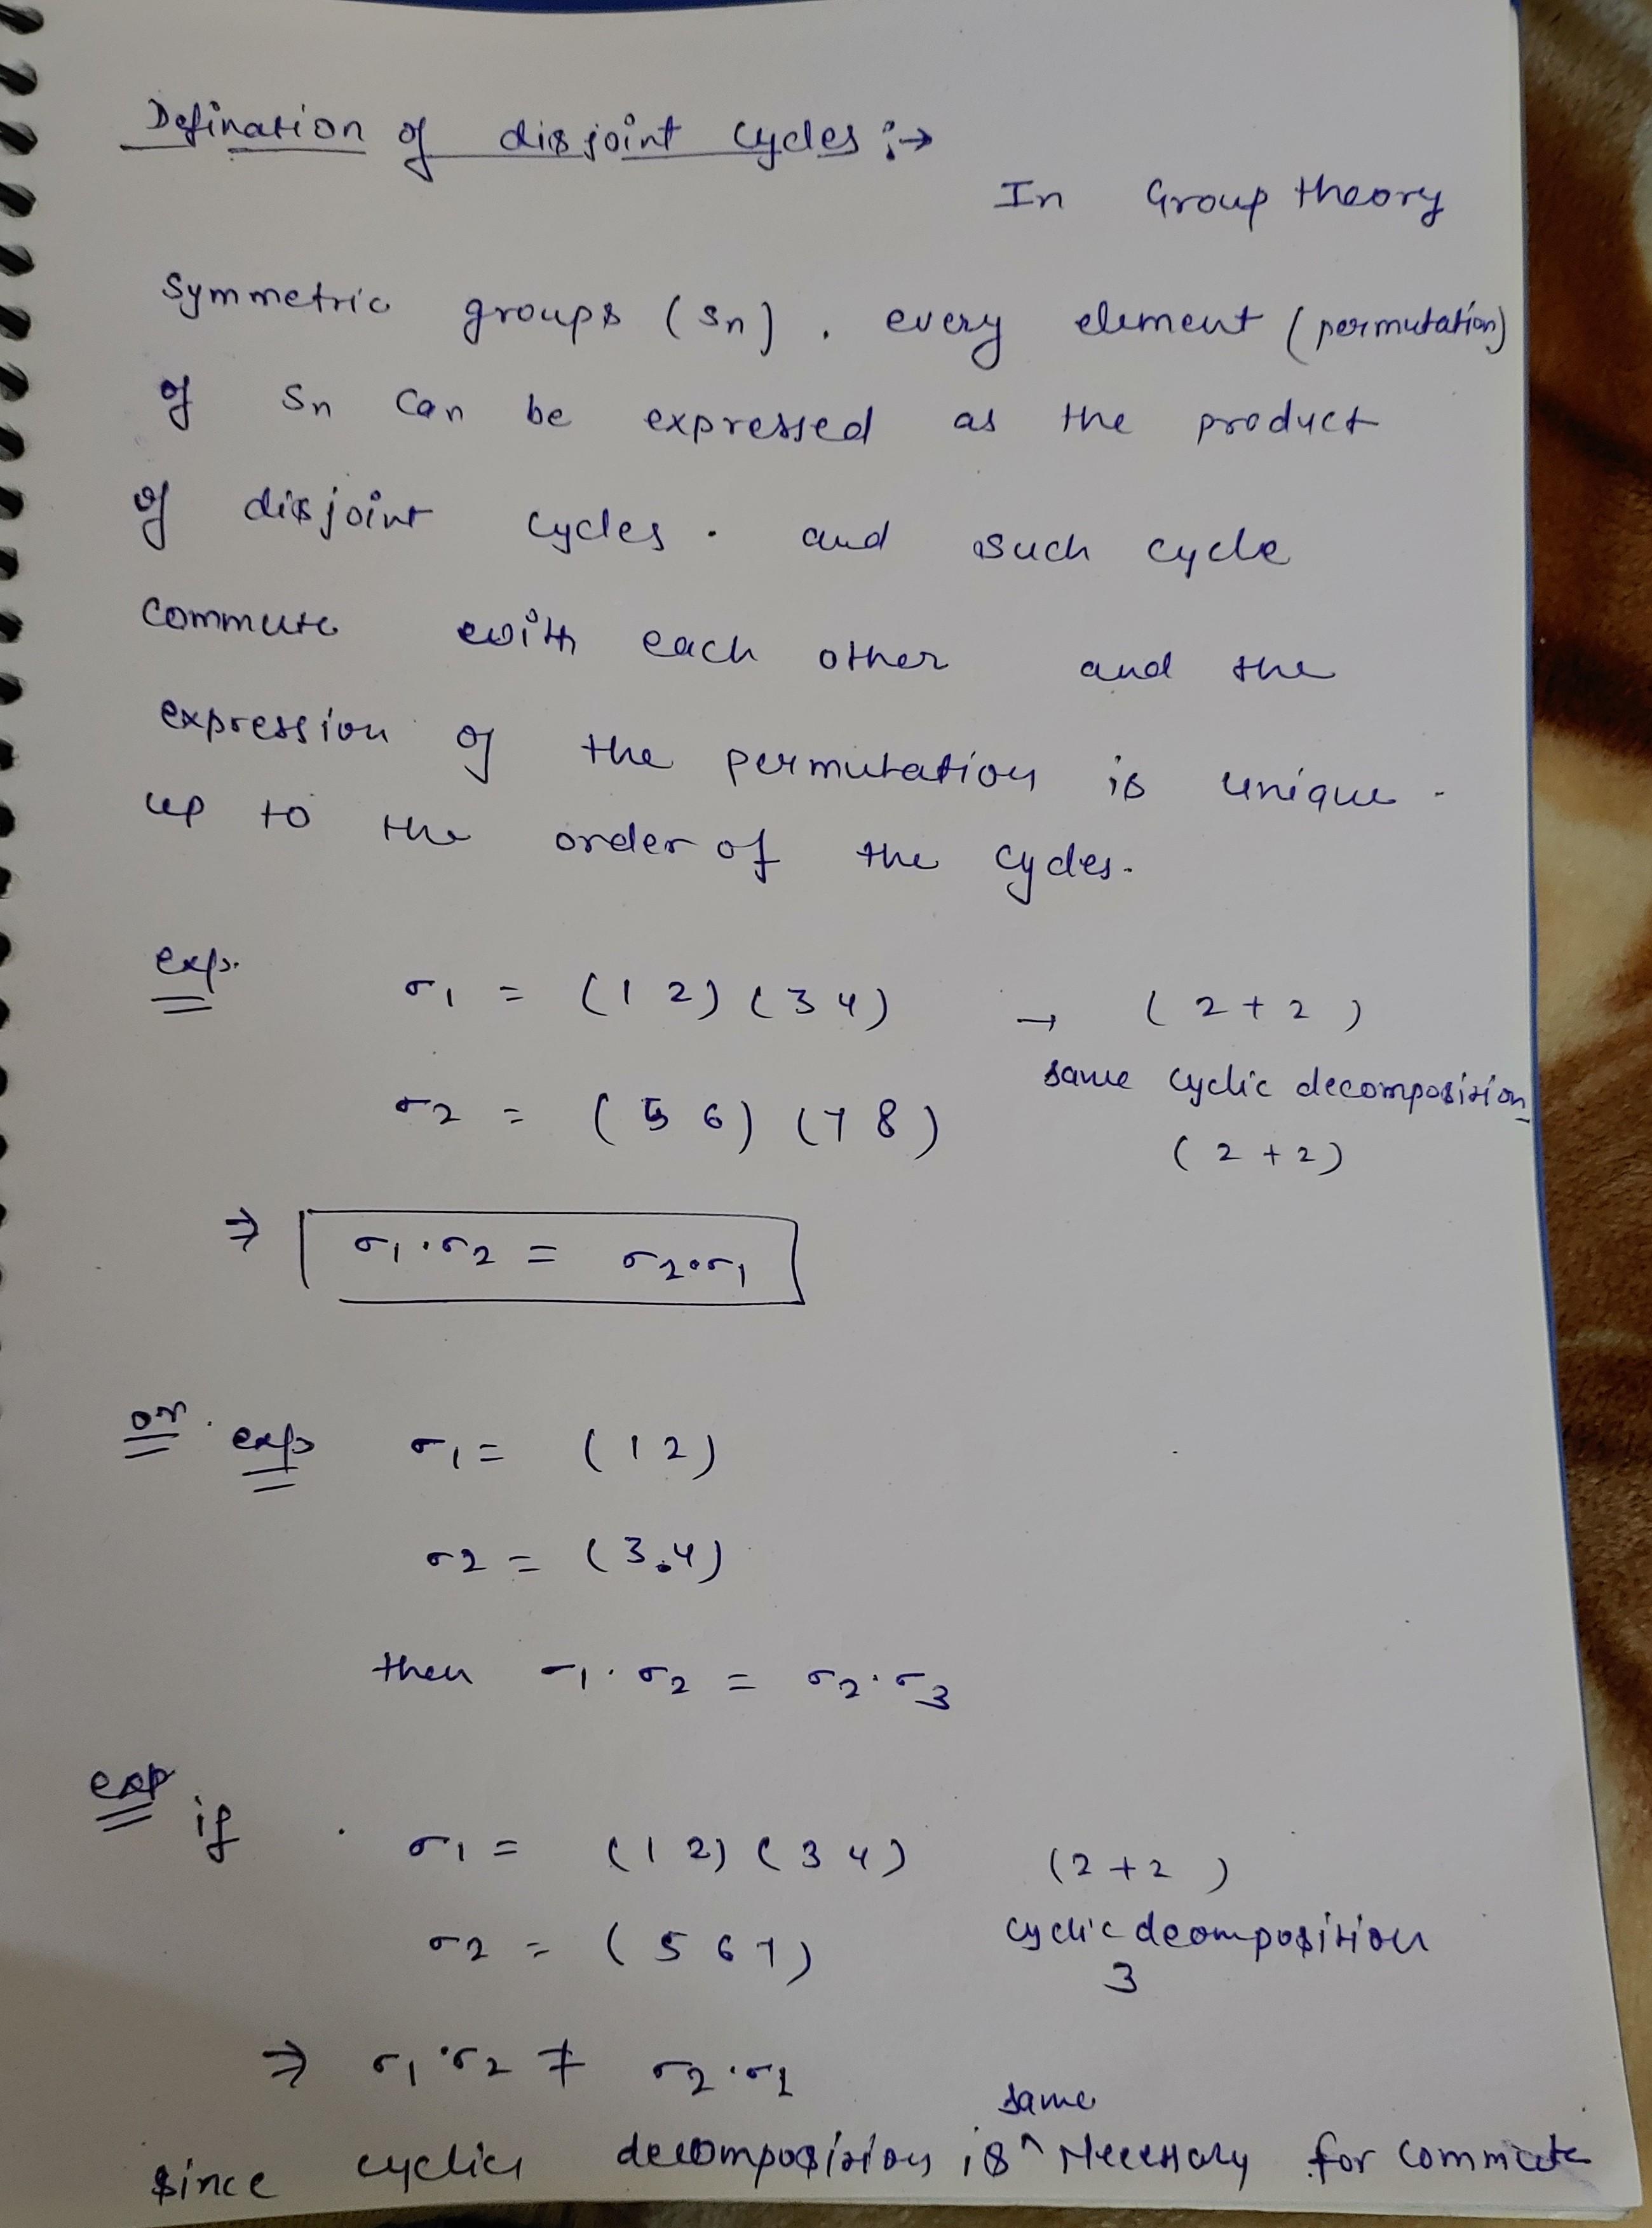 Defination of disjoint cycles :→
In Group theory
Symmetric groups (Sn) . every element (permutation)
of Sn can be expressed as the product
of disjoint cycles . and such cycle
commute with each other and the
expression of the permutation is unique -
up to the order of the cycles.
exp. σ1 = (1 2) (3 4) → (2+2)
same cyclic decomposition
σ2 = (5 6) (7 8) (2+2)
⇒ σ1.σ2 = σ2.σ1
or. exp σ1 = (1 2)
σ2 = (3.4)
then σ1.σ2 = σ2.σ3
exp if . σ1 = (1 2) (3 4) (2+2)
σ2 = (5 6 7) cyclic deomposition
3
⇒ σ1.σ2 ≠ σ2.σ1
same
since cyclic decomposition is ^ Necessary for commute